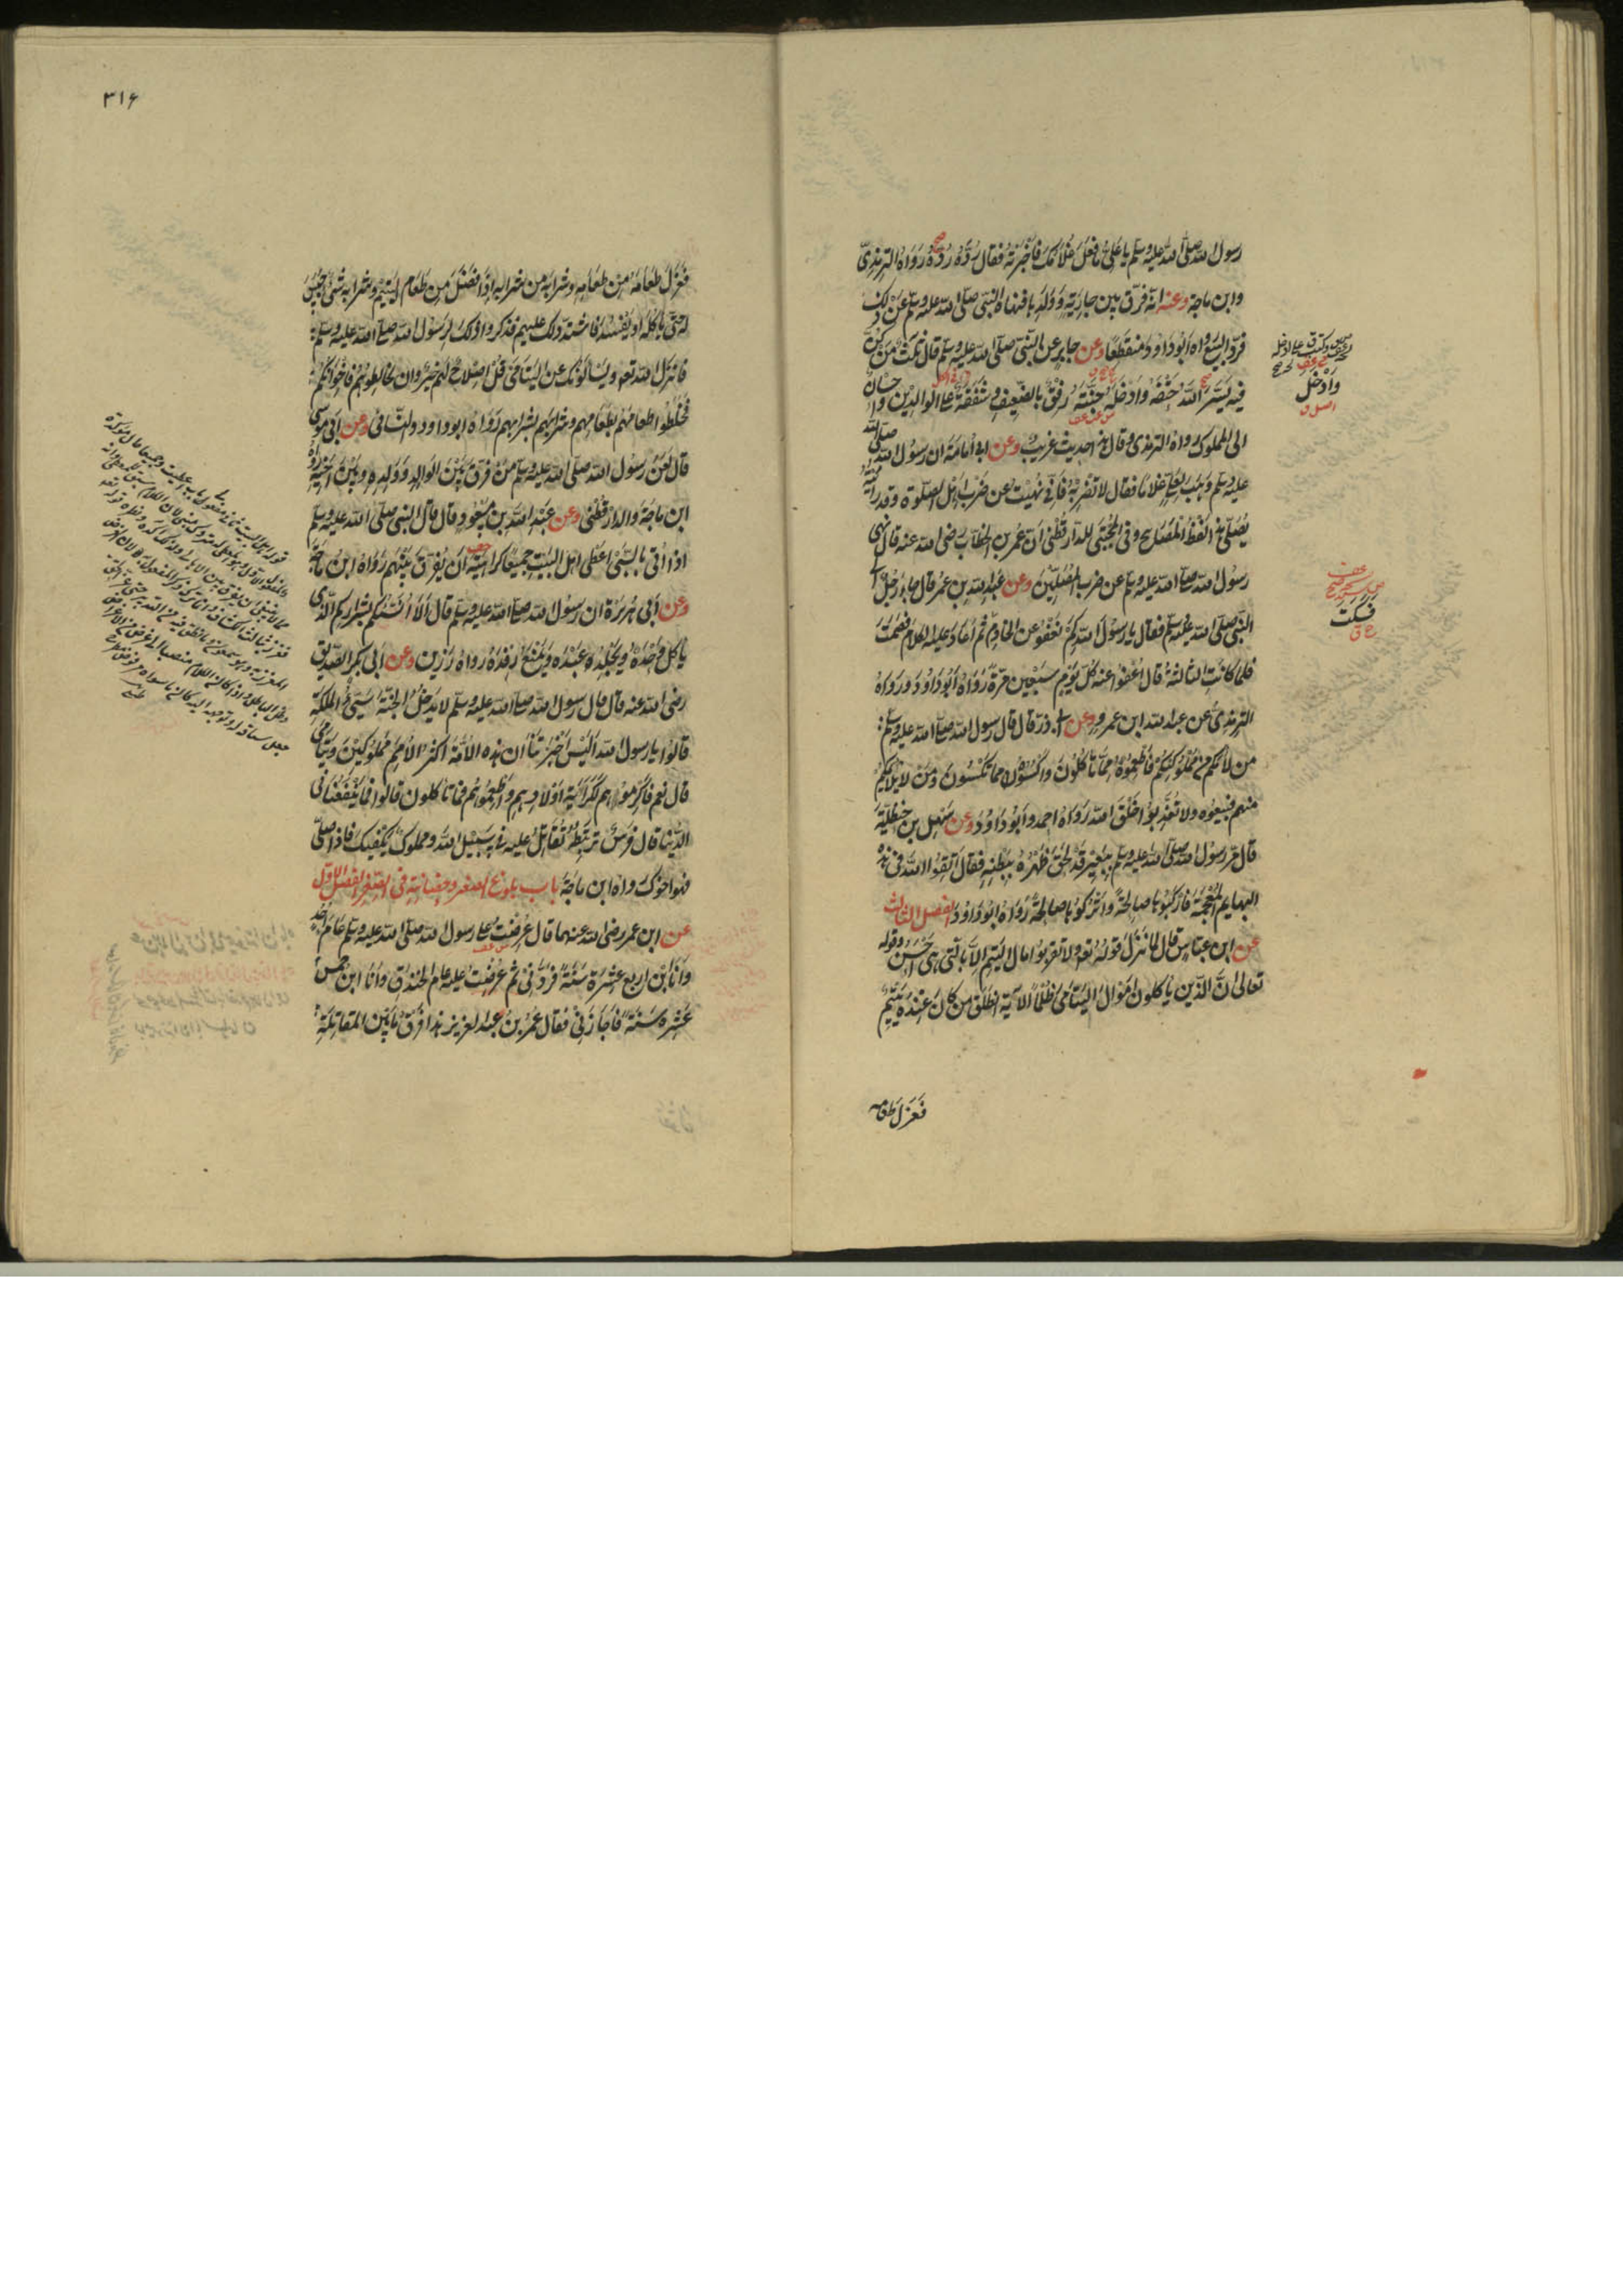 رسول الله صلى الله عليه وسلم يا على ما فعل غلامك فاخبرته فقال رده رده رواه الترمذى
وابن ماجة وعنه انه فرق بين جارية وولدها فنهاه النبى صلى الله عليه وسلم عن ذلك
فرد البيع رواه ابو داود منقطعا وعن جابر عن النبى صلى الله عليه وسلم قال ثلث من كن
فيه يسر الله حتفه وادخله جنته رفق بالضعيف وشفقة على الوالدين واحسان
الى المملوك رواه الترمذى وقال هذا حديث غريب وعن ابى امامة ان رسول الله صلى الله
عليه وسلم وهب لعلى غلاما فقال لا تضربه فانى نهيت عن ضرب اهل الصلوة وقد رأيته
يصلى هذا لفظ المصابيح وفى المجتبى للدارقطنى ان عمر بن الخطاب رضى الله عنه قال نهى
رسول الله صلى الله عليه وسلم عن ضرب المصلين وعن عبد الله بن عمر قال جاء رجل الى
النبى صلى الله عليه وسلم فقال يا رسول الله كم نعفو عن الخادم ثم اعاد عليه الكلام فصمت
فلما كانت الثالثة قال اعفوا عنه كل يوم سبعين مرة رواه ابو داود ورواه
الترمذى عن عبد الله ابن عمرو وعن ابى ذر قال قال رسول الله صلى الله عليه وسلم
من لائمكم من مملوكيكم فاطعموه مما تاكلون واكسوه مما تكسون ومن لا يلائمكم
منهم فبيعوه ولا تعذبوا خلق الله رواه احمد وابو داود وعن سهل بن حنظلية
قال مر رسول الله صلى الله عليه وسلم ببعير قد لحق ظهره ببطنه فقال اتقوا الله فى هذه
البهايم المعجمة فاركبوها صالحة واتركوها صالحة رواه ابو داود الفصل الثالث
عن ابن عباس قال لما نزل قوله تعه ولا تقربوا مال اليتيم الا بالتى هى احسن وقوله
تعالى ان الذين ياكلون اموال اليتامى ظلما الآية انطلق من كان عنده يتيم
فعزل طعامه
وادخل
فسكت
٣١۶
فعزل طعامه من طعامه وشرابه من شرابه فاذا فضل من طعام اليتيم وشرابه شئ حبس
له حتى ياكله او يفسد فاشتد ذلك عليهم فذكروا ذلك لرسول الله صلى الله عليه وسلم
فانزل الله تعه ويسألونك عن اليتامى قل اصلاح لهم خير وان تخالطوهم فاخوانكم
فخلطوا طعامهم بطعامهم وشرابهم بشرابهم رواه ابو داود والنسائى وعن ابى موسى
قال لعن رسول الله صلى الله عليه وسلم من فرق بين الوالد وولده وبين الاخ واخيه رواه
ابن ماجة والدارقطنى وعن عبد الله بن مسعود قال كان النبى صلى الله عليه وسلم
اذا اتى بالسبى اعطى اهل البيت جميعا كراهية ان يفرق بينهم رواه ابن ماجة
وعن ابى هريرة ان رسول الله صلى الله عليه وسلم قال الا انبئكم بشراركم الذى
ياكل وحده ويجلد عبده ويمنع رفده رواه رزين وعن ابى بكر الصديق
رضى الله عنه قال قال رسول الله صلى الله عليه وسلم لا يدخل الجنة سيئ الملكة
قالوا يا رسول الله اليس اخبرتنا ان هذه الامة اكثر الامم مملوكين ويتامى
قال نعم فاكرموهم ككرامة اولادهم واطعموهم مما تاكلون قالوا فما ينفعنا فى
الدنيا قال فرس ترتبطه تقاتل عليه فى سبيل الله ومملوك يكفيك فاذا صلى
فهو اخوك رواه ابن ماجة باب بلوغ الصغير وحضانته فى الصغر الفصل الاول
عن ابن عمر رضى الله عنهما قال عرضت على رسول الله صلى الله عليه وسلم عام احد
وانا ابن اربع عشرة سنة فردنى ثم عرضت عليه عام الخندق وانا ابن خمس
عشرة سنة فاجازنى فقال عمر بن عبد العزيز هذا فرق ما بين المقاتلة